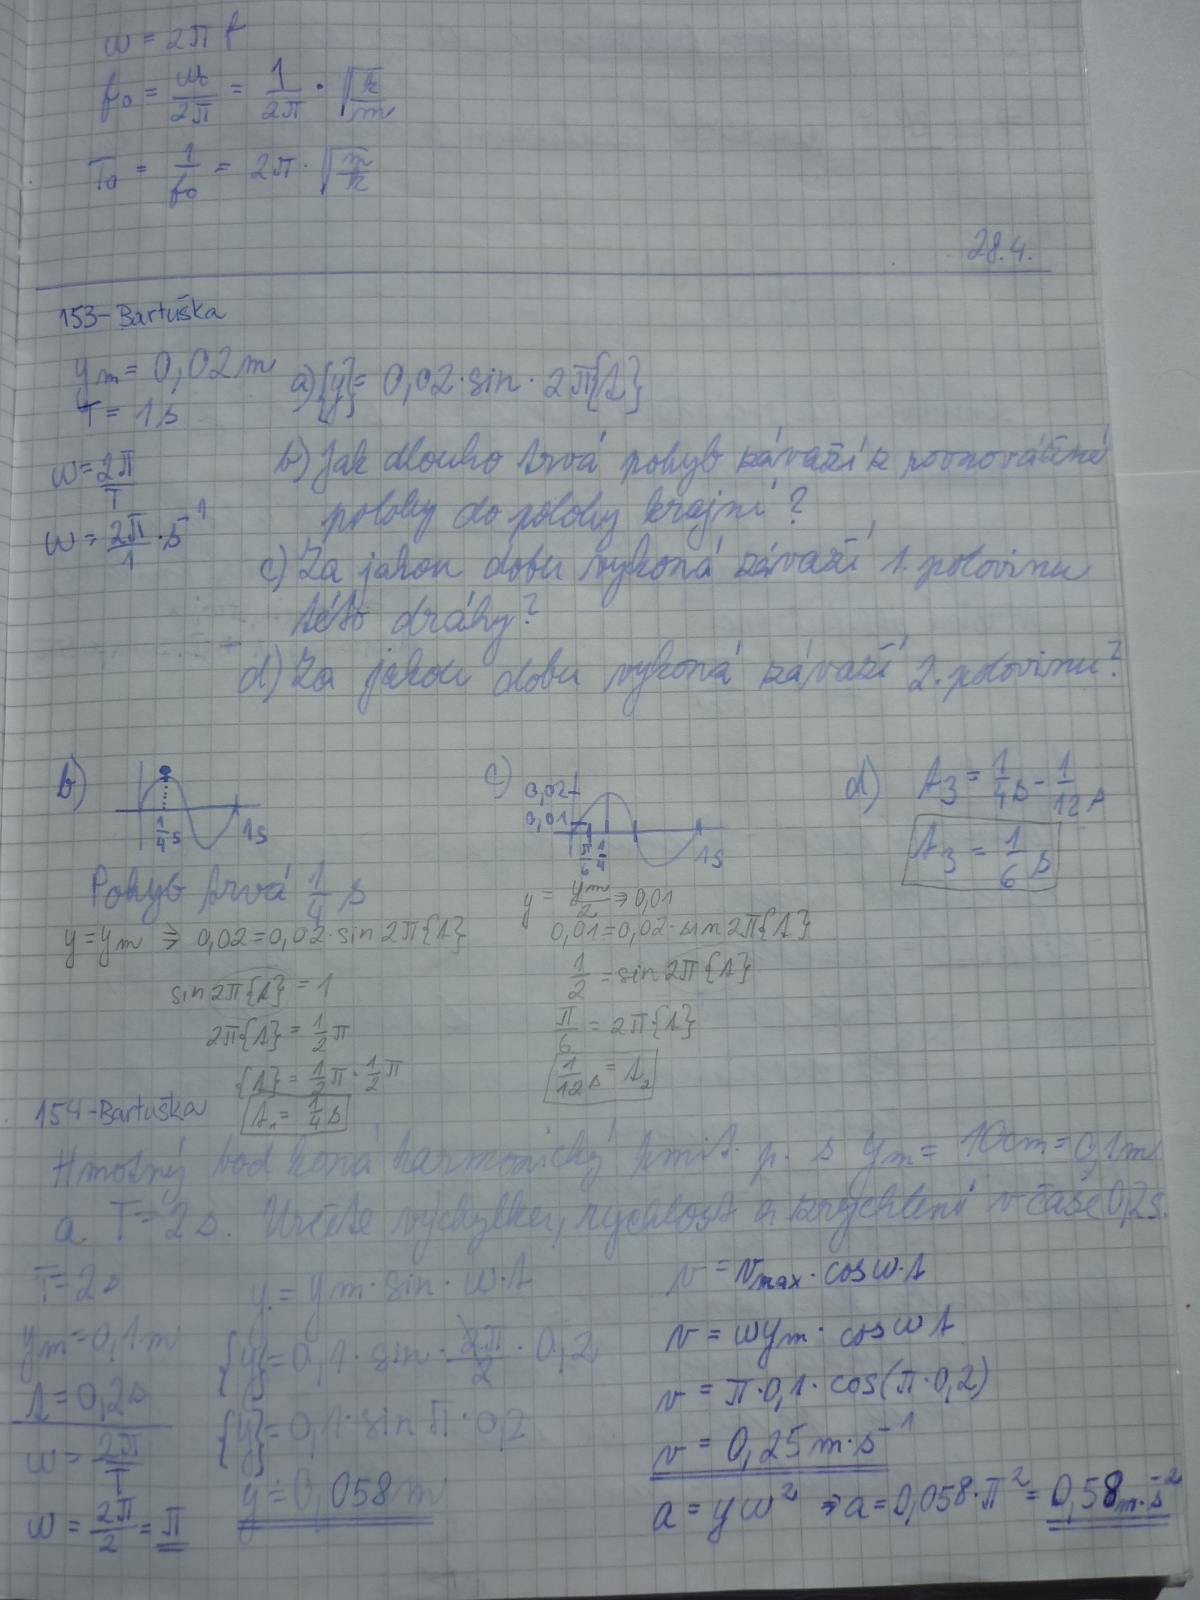 ω = 2π f
f₀ = ω/2π = 1/2π · √(k/m)
T₀ = 1/f₀ = 2π · √(m/k)
28.4.
153-Bartuška
yₘ = 0,02 m
T = 1s
ω = 2π/T
ω = 2π/1 · s⁻¹
a) {y} = 0,02·sin· 2π{t}
b) Jak dlouho trvá pohyb závaží z rovnovážné
polohy do polohy krajní?
c) Za jakou dobu vykoná závaží 1. polovinu
této dráhy?
d) Za jakou dobu vykoná závaží 2. polovinu?
b)
1/4 s
1s
Pohyb trvá 1/4 s
y = yₘ ⇒ 0,02 = 0,02·sin 2π{t}
sin 2π{t} = 1
2π{t} = 1/2 π
{t} = 1/2 π · 1/2 π
t₁ = 1/4 s
c)
0,02
0,01
π/6 1/4
1s
y = yₘ/2 ⇒ 0,01
0,01 = 0,02·sin 2π{t}
1/2 = sin 2π{t}
π/6 = 2π{t}
1/12 s = t₂
d) t₃ = 1/4 s - 1/12 s
t₃ = 1/6 s
154-Bartuška
Hmotný bod koná harmonický kmit. p. s yₘ = 10cm = 0,1m
a. T = 2s. Určete výchylku, rychlost a zrychlení v čase 0,2s.
T = 2s
yₘ = 0,1m
t = 0,2s
ω = 2π/T
ω = 2π/2 = π
y = yₘ·sin·ω·t
{y} = 0,1·sin· 2π/2 · 0,2
{y} = 0,1·sin π·0,2
y = 0,058m
v = vₘₐₓ·cos ω·t
v = ωyₘ· cos ωt
v = π·0,1·cos(π·0,2)
v = 0,25 m·s⁻¹
a = yω² ⇒ a = 0,058·π² = 0,58 m·s⁻²